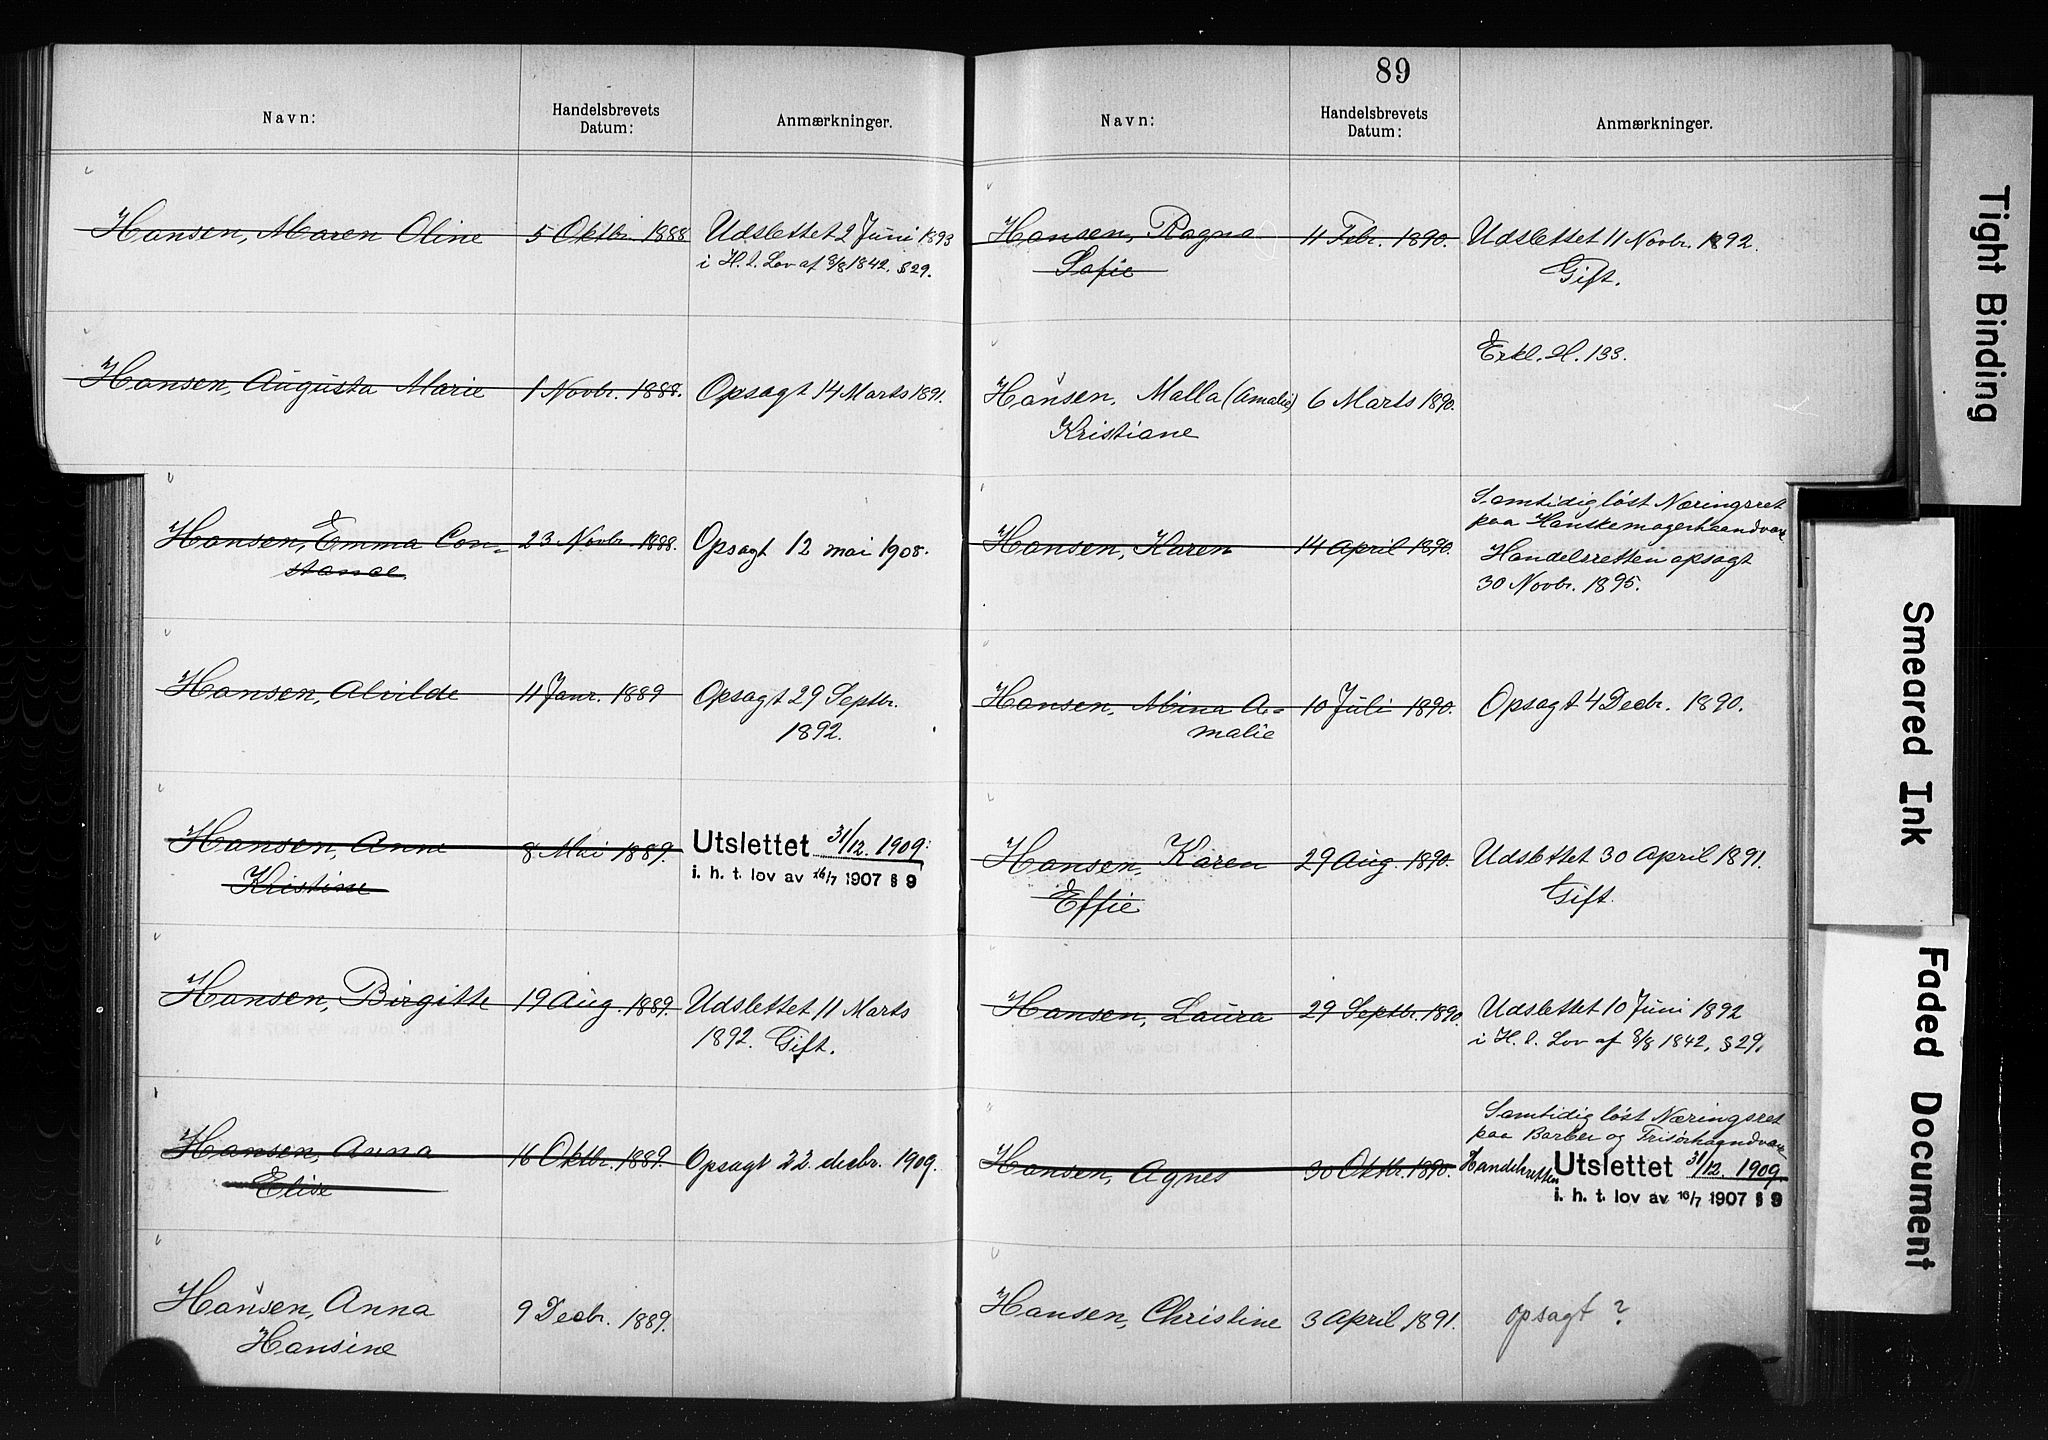 Navn:
Handelsbrevets
Datum:
Anmærkninger.
Hansen, Maren Oline
5 Oktbr. 1888
Udslettet 2 Juni 1893
i H. t. Lov af 8/8 1842, § 29.
Hansen, Augusta Marie
1 Novbr. 1888.
Opsagt 14 Marts 1891.
Hansen, Emma Con-
stance.
23 Novbr. 1888.
Opsagt 12 mai 1908.
Hansen, Alvilde
11 Janr. 1889
Opsagt 29 Septbr.
1892.
Hansen, Anne
Kristine
8 Mai 1889.
Utslettet 31/12. 1909.
i. h. t. lov av 16/7 1907 § 9
Hansen, Birgitte
19 Aug. 1889.
Udslettet 11 Marts
1892. Gift.
Hansen, Anna
Elise
16 Oktbr. 1889.
Opsagt 22. decbr. 1909.
Hansen, Anna
Hansine
9 Decbr. 1889.
89
Navn:
Handelsbrevets
Datum:
Anmærkninger.
Hansen, Ragna
Sofie
11 Febr. 1890.
Udslettet 11 Novbr. 1892.
Gift.
Hansen, Malla (Amalie)
Kristiane
6 Marts 1890.
Erkl. H. 133.
Hansen, Karen
14 April 1890.
Samtidig løst Næringsret
paa Hanskemagerhaandværk
Handelsretten opsagt
30 Novbr. 1895.
Hansen, Mina A-
malie
10 Juli 1890.
Opsagt 4 Decbr. 1890.
Hansen, Karen
Effie
29 Aug. 1890.
Udslettet 30 April 1891.
Gift.
Hansen, Laura
29 Septbr. 1890.
Udslettet 10 Juni 1892
i H. t. Lov af 8/8 1842, § 29.
Hansen, Agnes
30 Oktbr. 1890.
Samtidig løst Næringsret
paa Barber og Frisørhaandværk
Handelsretten Utslettet 31/12. 1909.
i. h. t. lov av 16/7 1907 § 9
Hansen, Christine
3 April 1891.
opsagt ?
Tight Binding
Smeared Ink
Faded Document